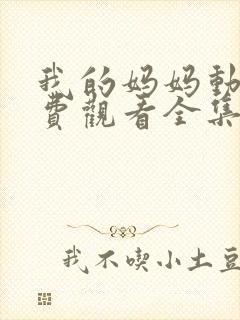 我的妈妈動
費觀看全集
我不喫小土豆